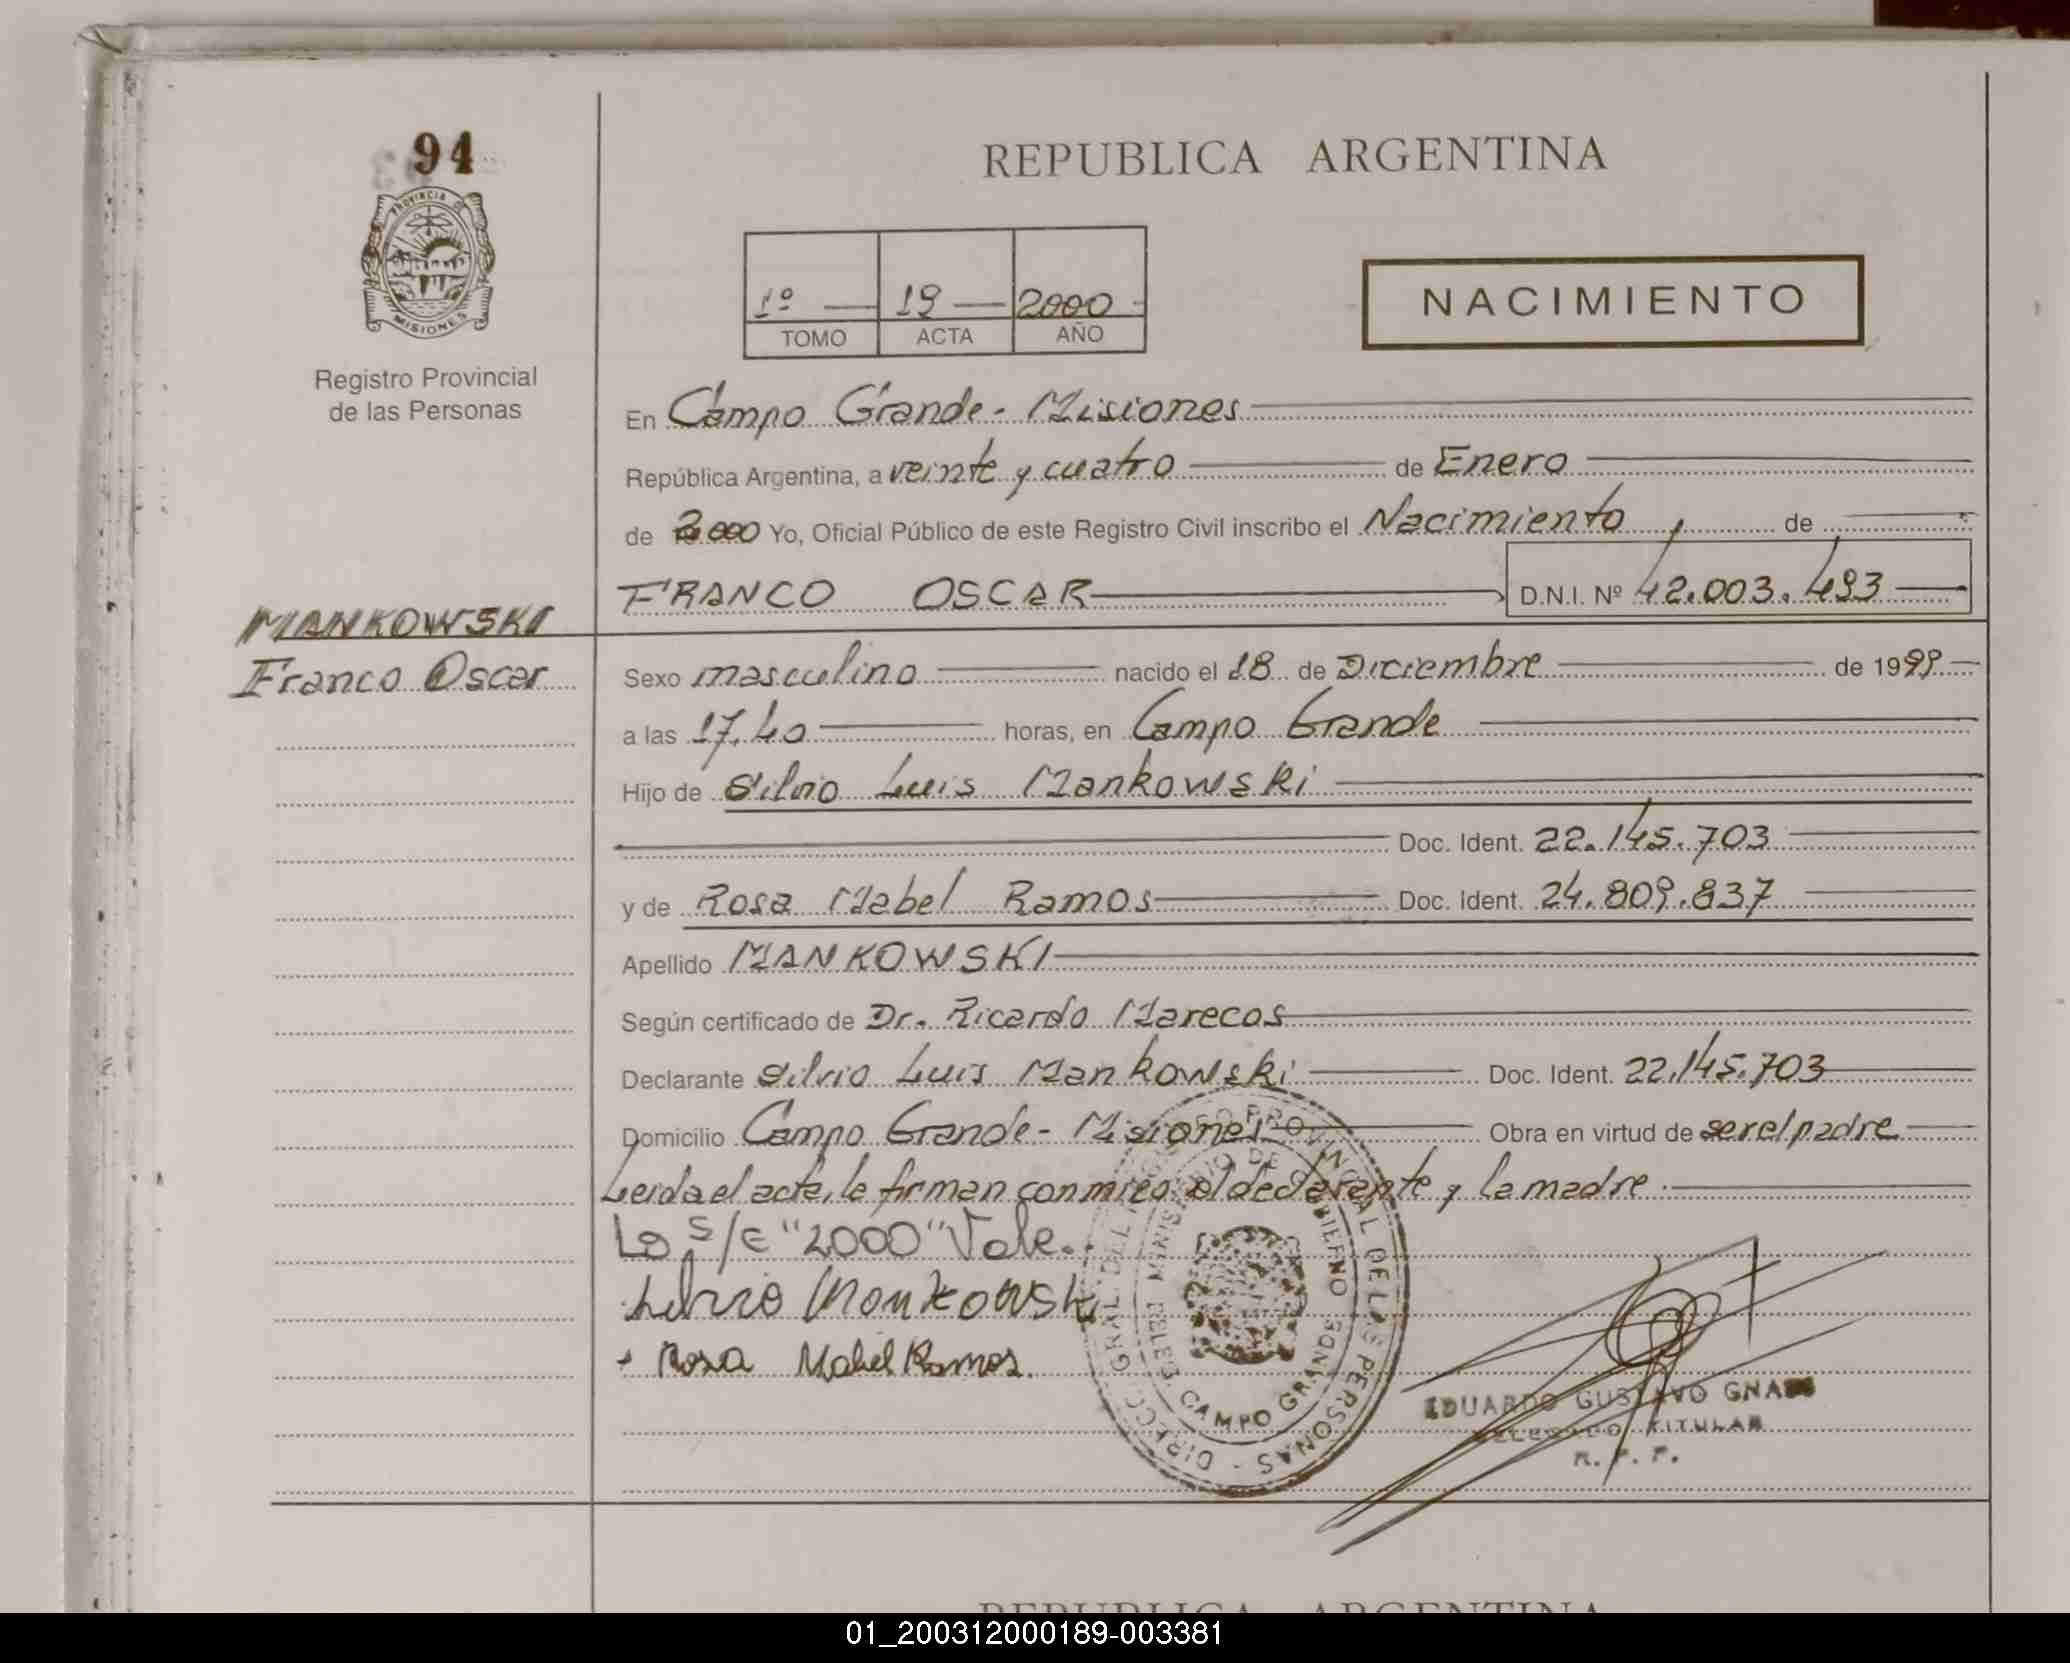 94
PROVINCIA D
MISIONES
Registro Provincial
de las Personas
MANKOWSKI
Franco Oscar
REPUBLICA ARGENTINA
1º 19 2000
TOMO ACTA AÑO
NACIMIENTO
En Campo Grande - Misiones
República Argentina, a veinte y cuatro de Enero
de 2000 Yo, Oficial Público de este Registro Civil inscribo el Nacimiento de
FRANCO OSCAR D.N.I. Nº 42.003.493
Sexo masculino nacido el 18 de Diciembre de 1999
a las 17.40 horas, en Campo Grande
Hijo de Silvio Luis Mankowski
Doc. Ident. 22.145.703
y de Rosa Mabel Ramos Doc. Ident. 24.809.837
Apellido MANKOWSKI
Según certificado de Dr. Ricardo Marecos
Declarante Silvio Luis Mankowski Doc. Ident. 22.145.703
Domicilio Campo Grande - Misiones Obra en virtud de ser el padre
Leida el acta, la firman conmigo el declarante y la madre
Lo S/E "2000" Vale.
Silvio Mankowski
Rosa Mabel Ramos.
DIRECC. GRAL. DEL REGISTRO PROVINCIAL DE LAS PERSONAS
MINISTERIO DE GOBIERNO
DELEG. CAMPO GRANDE
EDUARDO GUSTAVO
DELEGADO TITULAR
R. P. P.
REPUBLICA ARGENTINA
01_200312000189-003381